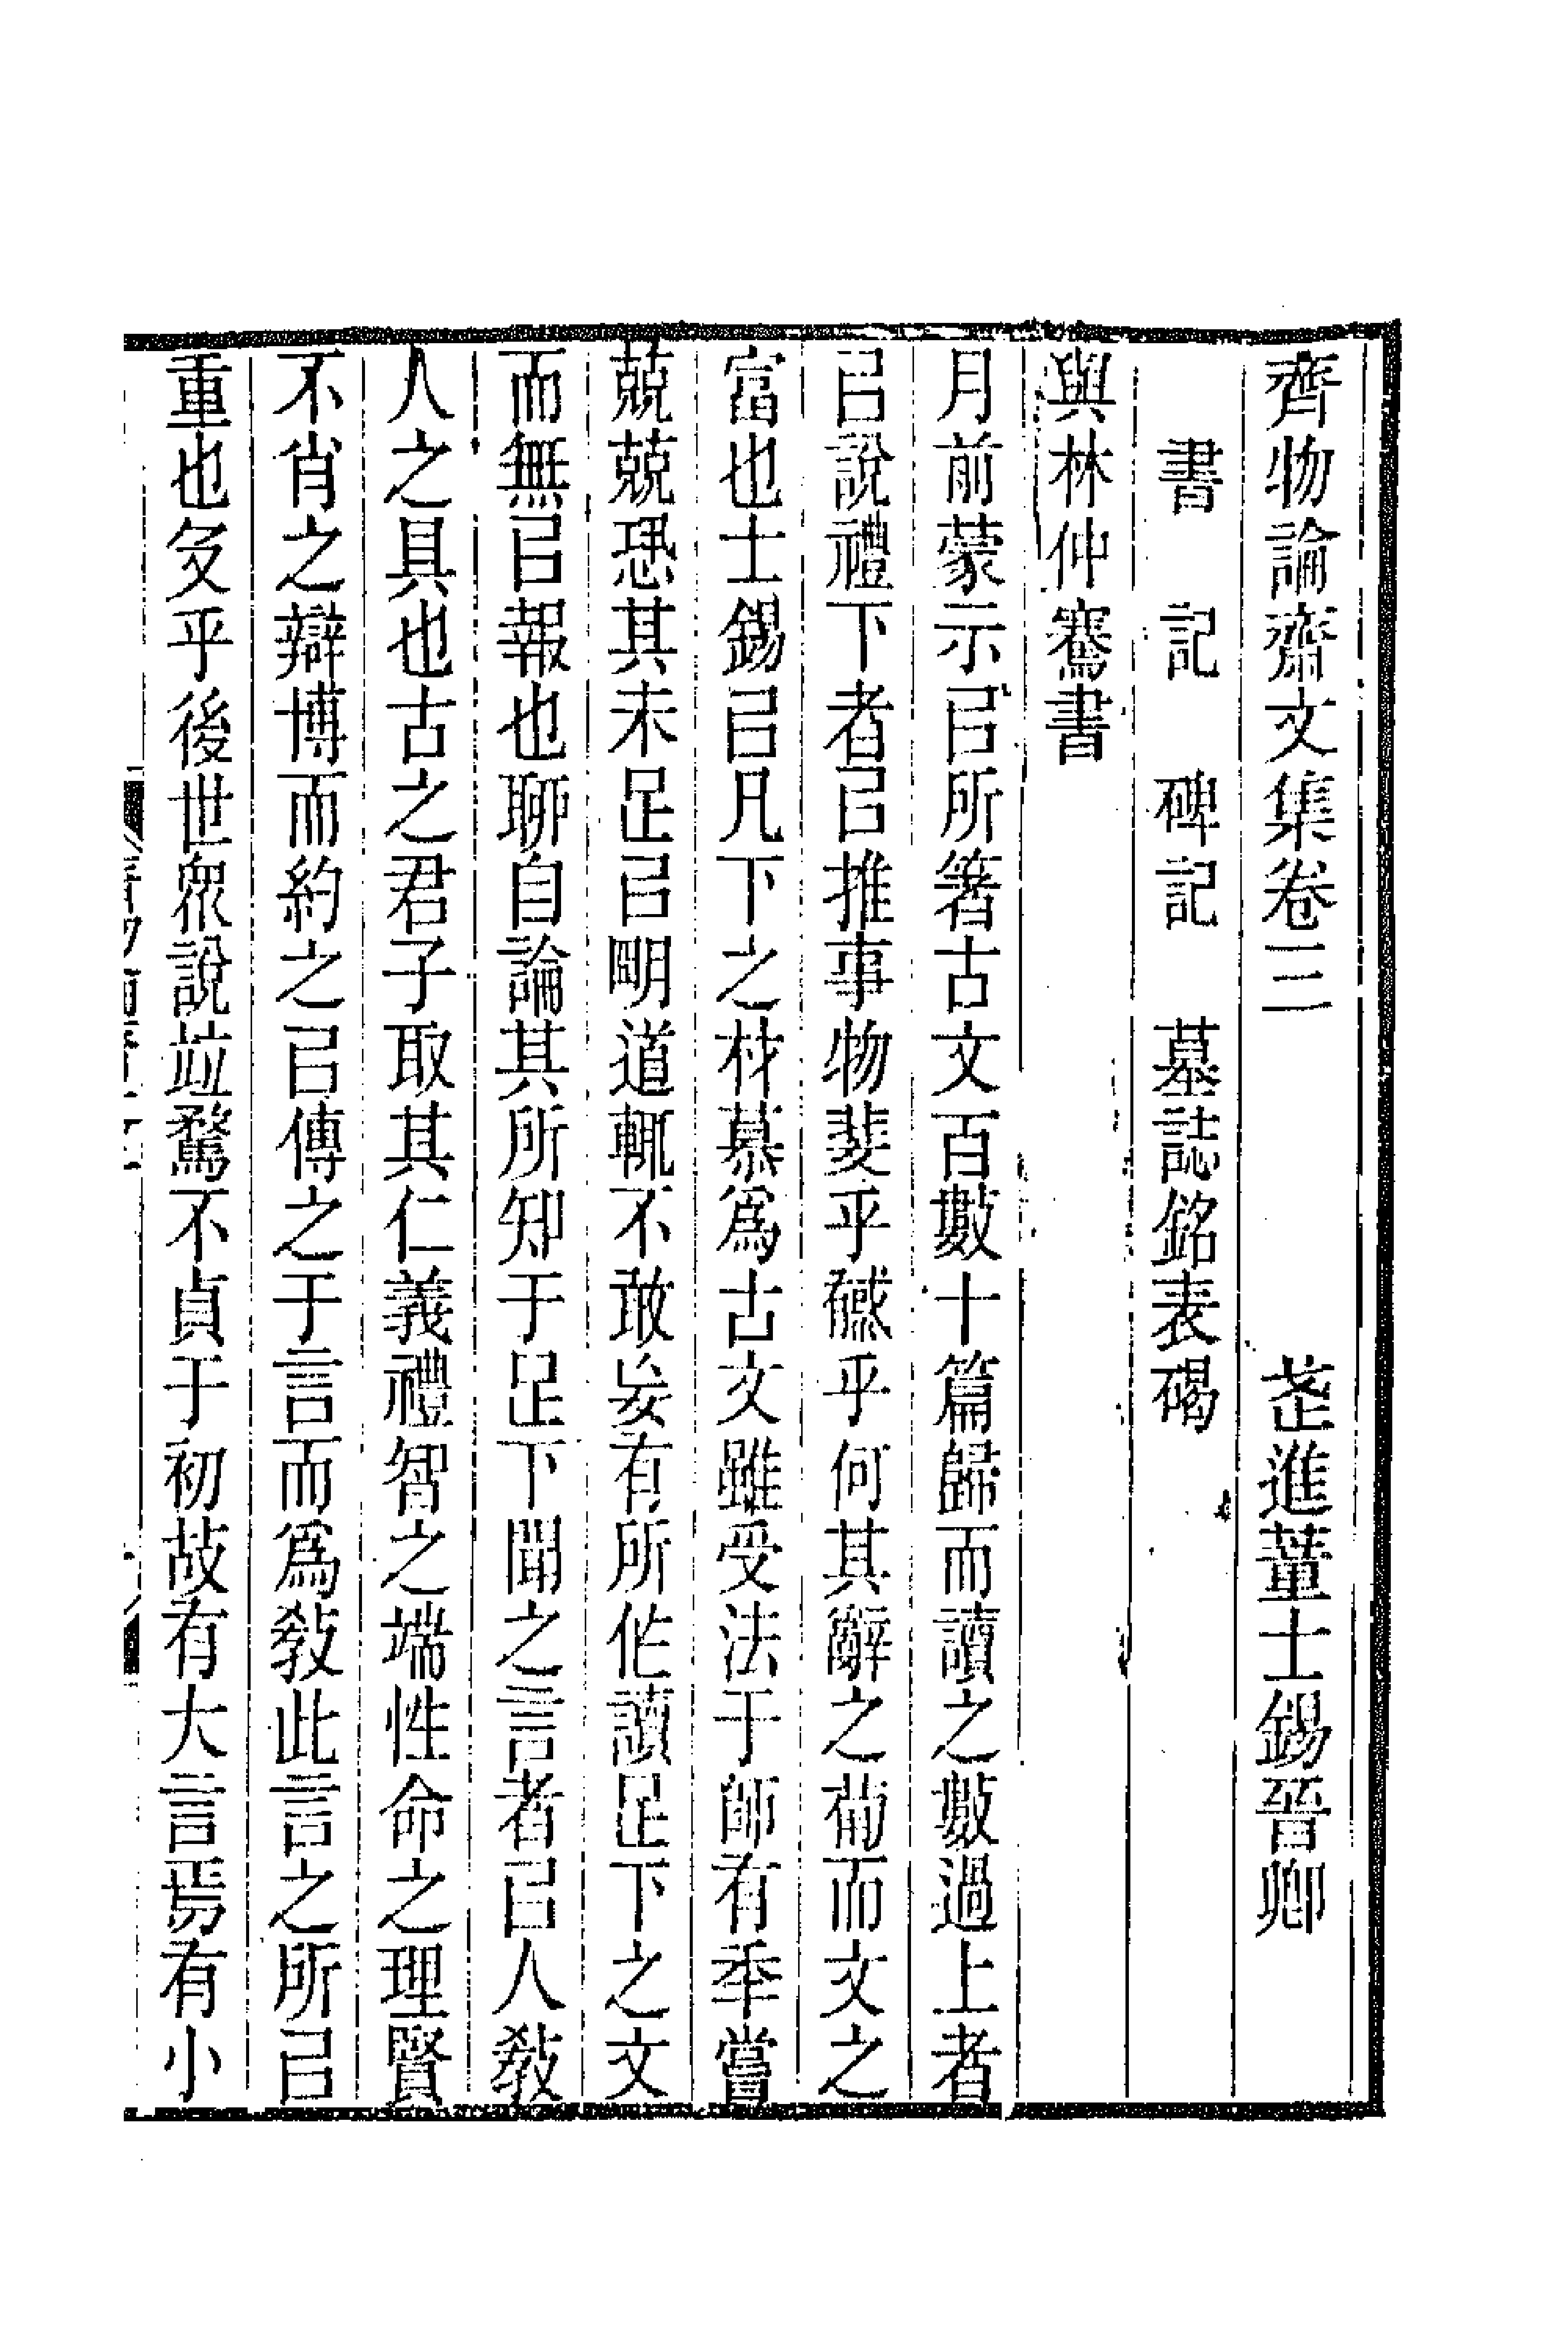 齊物論齋文集卷三　　　　武進董士錫晉卿
書　記　碑記　墓誌銘表碣
與林仲騫書
月前蒙示㠯所箸古文百數十篇歸而讀之數過上者
㠯說禮下者㠯推事物斐乎䤃乎何其辭之葡而文之
富也士錫㠯凡下之材慕爲古文雖受法于師有秊嘗
兢兢恐其未足㠯朙道輒不敢妄有所作讀足下之文
而無㠯報也聊自論其所知于足下聞之言者㠯人敎
人之具也古之君子取其仁義禮智之端性命之理賢
不肖之辯博而約之㠯傳之于言而爲敎此言之所㠯
重也及乎後世眾說竝騖不貞于初故有大言焉有小